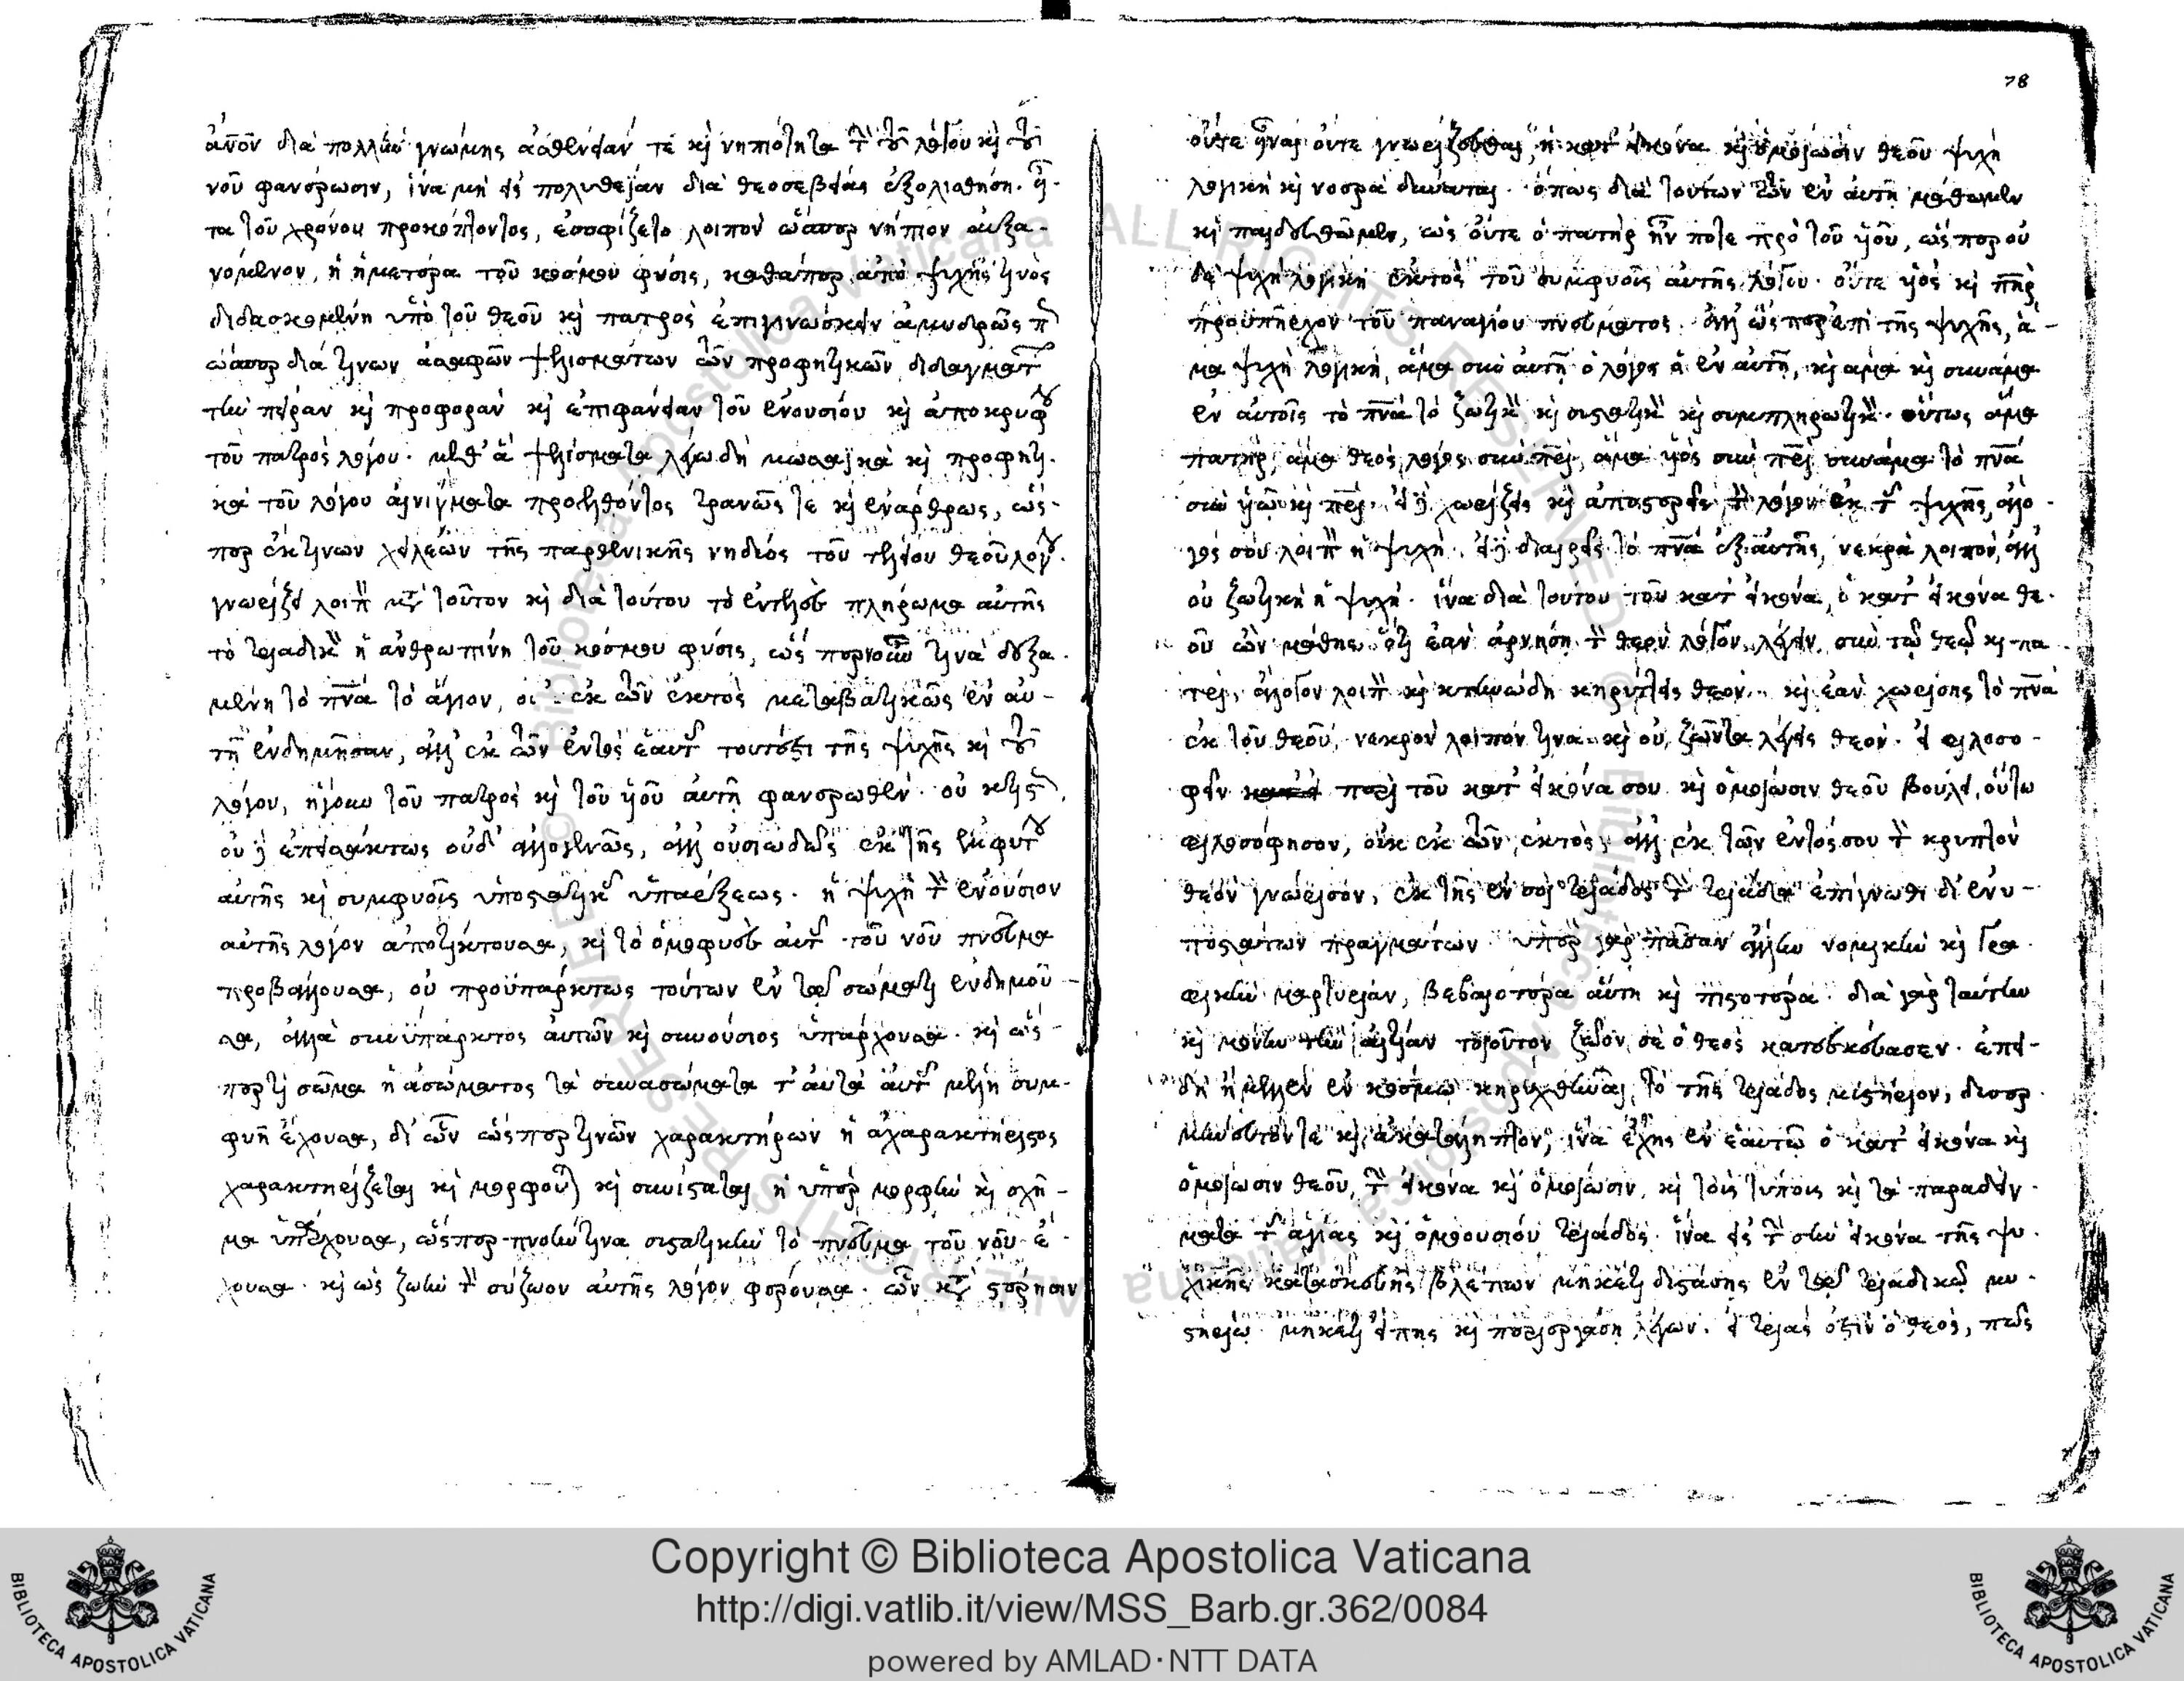 ἀνῶν διὰ πολλὴν γνώμης ἀσθένειάν τε καὶ νηπιότητα τὴν τοῦ λόγου καὶ τοῦ
νοῦ φανέρωσιν, ἵνα μὴ εἰς πολυθεΐαν διὰ θεοσεβείας ἐξολισθήση.
τα τοῦ χρόνου προκόπτοντος, ἐσοφίζετο λοιπὸν ὥσπερ νήπιον αὐξα-
νόμενον, ἡ ἡμετέρα τοῦ κόσμου φύσις, καθάπερ ἀπὸ ψυχῆς τινὸς
διδασκομένη ὑπὸ τοῦ θεοῦ καὶ πατρὸς ἐπιγινώσκειν ἀμυδρῶς
ὥσπερ διά τινων ἀσαφῶν ψελλισμάτων τῶν προφητικῶν διδαγμάτ
τὴν πεῖραν καὶ προφορὰν καὶ ἐπιφάνειαν τοῦ ἐνουσίου καὶ ἀποκρύφου
τοῦ πατρὸς λόγου. μεθ' ἃ ψελλίσματα λέγω δὴ μωσαϊκὰ καὶ προφητι-
κὰ τοῦ λόγου αἰνίγματα προελθόντος τρανῶς τε καὶ ἐνάρθρως, ὥς-
περ ἐκ τινων χειλέων τῆς παρθενικῆς νηδύος τοῦ τελείου θεοῦ λόγου.
γνωρίζει λοιπὸν μετὰ τοῦτον καὶ διὰ τούτου τὸ ἐντελὲς πλήρωμα αὐτῆς
τὸ τριαδικὸν ἡ ἀνθρωπίνη τοῦ κόσμου φύσις, ὥς περ πνοὴν τινὰ δεξα-
μένη τὸ πνά τὸ ἅγιον, οὐκ ἐκ τῶν ἐκτὸς μεταβατικῶς ἐν αὐ-
τῇ ἐνδημῆσαν, ἀλλ' ἐκ τῶν ἐντὸς ἑαυτῆς τουτέστι τῆς ψυχῆς καὶ τοῦ
λόγου, ἤγουν τοῦ πατρὸς καὶ τοῦ υἱοῦ αὐτῇ φανερωθέν. οὐ
οὐδ' ἐπεισάκτως οὐδ' ἀλλογενῶς, ἀλλ' οὐσιωδῶς ἐκ τῆς ἐμφύτου
αὐτῆς καὶ συμφυοῦς ὑποστατικῆς ὑπάρξεως. ἡ ψυχὴ τὸν ἐνούσιον
αὐτῆς λόγον ἀποτίκτουσα, καὶ τὸ ὁμοφυὲς αὐτῆς τοῦ νοῦ πνεῦμα
προβάλλουσα, οὐ προϋπάρκτως τούτων ἐν τῷ σώματι ἐνδημοῦ-
σα, ἀλλὰ συνύπαρκτος αὐτῶν καὶ συνούσιος ὑπάρχουσα. καὶ ὥς-
περ τι σῶμα ἡ ἀσώματος τὰ συνασώματα ταῦτα αὐτῆς μέλη συμ-
φυῆ ἔχουσα, δι' ὧν ὥς περ τινῶν χαρακτήρων ἡ ἀχαρακτήριστος
χαρακτηρίζεται καὶ μορφοῦται καὶ συνίσταται, ἡ ὑπὲρ μορφὴν καὶ σχῆ-
μα ὑπάρχουσα, ὥς περ πνοὴν τινα συστατικὴν τὸ πνεῦμα τοῦ νοῦ ἔ-
χουσα. καὶ ὡς ζωὴν τὸν σύζωον αὐτῆς λόγον φοροῦσα. ὧν κατὰ στέρησιν
78
οὔτε εἶναι οὔτε γνωρίζεσθαι, ἡ κατ' εἰκόνα καὶ ὁμοίωσιν θεοῦ ψυχὴ
λογικὴ καὶ νοερὰ δύναται. ὅπως διὰ τούτων τῶν ἐν αὐτῇ μάθωμεν
καὶ παιδευθῶμεν, ὡς οὔτε ὁ πατὴρ ἦν ποτε πρὸ τοῦ υἱοῦ, ὥς περ οὐ
δὲ ψυχὴ λογικὴ ἐκτὸς τοῦ συμφυοῦς αὐτῆς λόγου. οὔτε υἱὸς καὶ πηρ
προϋπῆρχον τοῦ παναγίου πνεύματος. ἀλλ' ὥς περ ἐπὶ τῆς ψυχῆς, ἅ-
μα ψυχὴ λογικὴ, ἅμα σὺν αὐτῇ ὁ λόγος ὁ ἐν αὐτῇ, καὶ ἅμα καὶ συνάμα
ἐν αὐτοῖς τὸ πνά τὸ ζωτικὸν καὶ συστατικὸν καὶ συμπληρωτικόν. οὕτως ἅμα
πατὴρ, ἅμα θεὸς λόγος σὺν πρι, ἅμα υἱὸς σὺν πρι συνάμα τὸ πνά
σὺν υἱῷ καὶ πρι. εἰ δὲ χωρίζεις καὶ ἀποστερεῖς τὸν λόγον ἐκ τῆς ψυχῆς, ἄλο-
γός σου λοιπὸν ἡ ψυχή. εἰ δὲ διαιρεῖς τὸ πνά ἐξ αὐτῆς, νεκρὰ λοιπὸν, ἀλλ'
οὐ ζωτικὴ ἡ ψυχή. ἵνα διὰ τούτου τοῦ κατ' εἰκόνα, ὁ κατ' εἰκόνα θε-
οῦ ὢν μάθης ὅτι ἐὰν ἀρνήση τὸν θεὸν λόγον λέγειν σὺν τῷ θεῷ καὶ πα-
τρί, ἄλογον λοιπὸν καὶ κτηνώδη κηρύττεις θεόν. καὶ ἐὰν χωρίσης τὸ πνά
ἐκ τοῦ θεοῦ, νεκρὸν λοιπόν τινα καὶ οὐ ζῶντα λέγεις θεόν. εἰ φιλοσο-
φεῖν περὶ τοῦ κατ' εἰκόνα σου καὶ ὁμοίωσιν θεοῦ βούλει, οὕτω
φιλοσόφησον, οὐκ ἐκ τῶν ἐκτὸς, ἀλλ' ἐκ τῶν ἐντός σου τὸν κρυπτὸν
θεὸν γνώρισον, ἐκ τῆς ἐν σοὶ τριάδος τὴν τριάδα ἐπίγνωθι δι' ἐνυ-
ποστάτων πραγμάτων. ὑπὲρ γὰρ πᾶσαν ἄλλην νομικὴν καὶ γρα-
φικὴν μαρτυρίαν, βεβαιοτέρα αὕτη καὶ πιστοτέρα. διὰ γὰρ ταύτην
καὶ μόνην τὴν αἰτίαν τοιοῦτον ζῶον σὲ ὁ θεὸς κατεσκεύασεν. ἐπει-
δὴ ἤμελλεν ἐν κόσμῳ κηρυχθῆναι τὸ τῆς τριάδος μυστήριον, δυσερ-
μήνευτόν τε καὶ ἀκατάληπτον, ἵνα ἔχης ἐν ἑαυτῷ ὁ κατ' εἰκόνα καὶ
ὁμοίωσιν θεοῦ, τὴν εἰκόνα καὶ ὁμοίωσιν, καὶ τοὺς τύπους καὶ τὰ παραδείγ-
ματα τῆς ἁγίας καὶ ὁμοουσίου τριάδος. ἵνα εἰς τὴν σὴν εἰκόνα τῆς ψυ-
χικῆς κατασκευῆς βλέπων μηκέτι διστάσης ἐν τῷ τριαδικῷ μυ-
στηρίῳ. μηκέτι εἴπης καὶ περιεργάση λέγων. εἰ τριάς ἐστιν ὁ θεὸς, πῶς
Copyright © Biblioteca Apostolica Vaticana
http://digi.vatlib.it/view/MSS_Barb.gr.362/0084
powered by AMLAD·NTT DATA
BIBLIOTECA APOSTOLICA VATICANA
BIBLIOTECA APOSTOLICA VATICANA